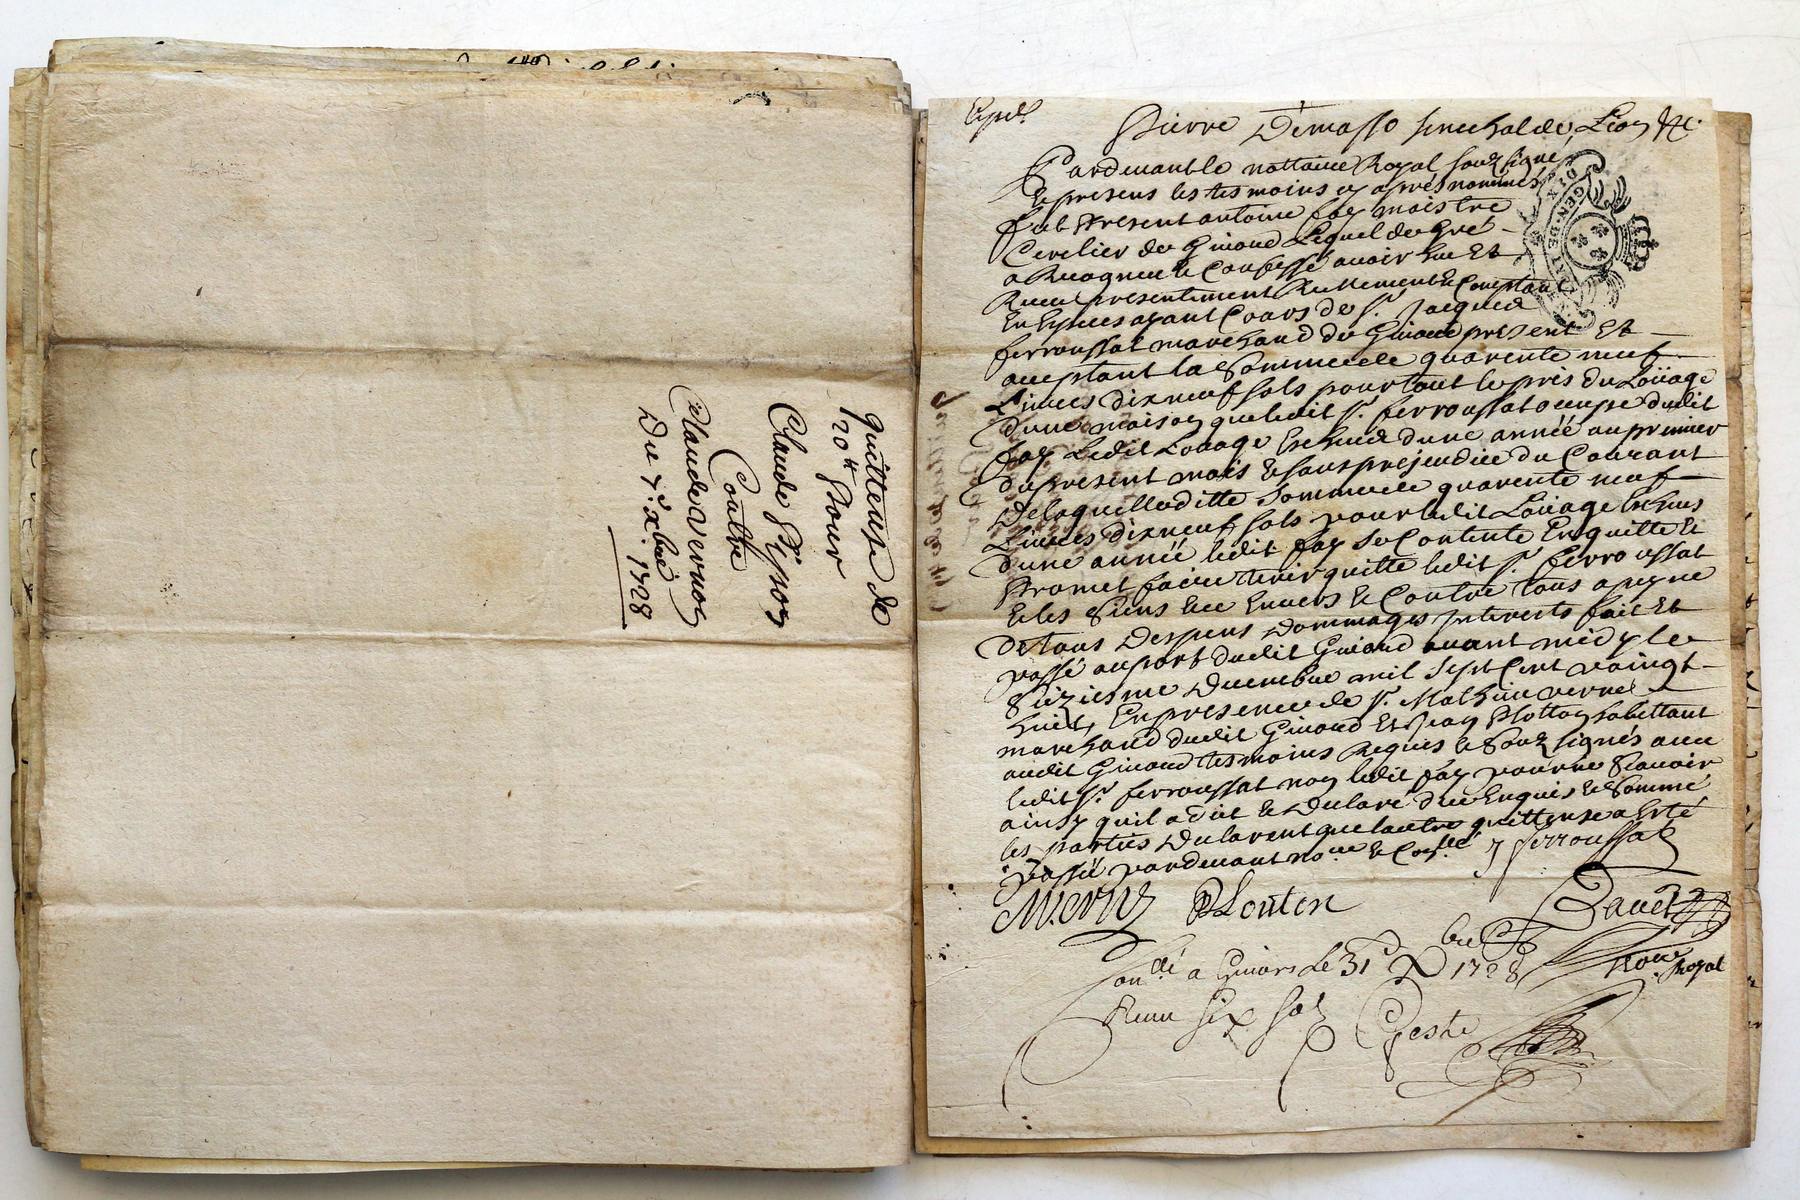 quittense de
120ᵗᵗ pour
Claude
Contre
Claude Vernoy
Du 7ᵉ xbre 1728
Expéd.
Pierre Demasso senechal de Lion &c.
Pardevant le nottaire Royal souz signé
Et presens les tesmoins cy apres nommés
fut Present antoine fay maistre
de Givord Lequel de Gré
a Recogneu & Confessé avoir heu Et
Receu presentement Reellement & Comptant
En Especes ayant Cours de Sʳ. Jacques
ferroussat marchand de Givord present Et
acceptant la Somme de quarente neuf
Livres dix neuf sols pour tout le pris du Loüage
dune maison que ledit Sʳ. ferroussat occupe dudit
fay Ledit Louage Escheu dune année au premier
du present mois & sans prejudice du Courant
De laquelle ditte Somme de quarente neuf
Livres dix neuf sols pour ledit Loüage Escheus
dune année ledit fay Se Contente En quitte Et
Promet faire tenir quitte ledit Sʳ. ferroussat
& les Siens Envers & Contre tous a peyne
De tous Despens Dommages Interests fait Et
passé au port dudit Givord avant midy le
Seiziesme Decembre mil Sept Cent vaingt
huit, En presence de Sʳ. Mathieu verne
marchand dudit Givord Et Jean Plotton habittant
audit Givord tesmoins Requis & Souz signés avec
ledit Sʳ. ferroussat non ledit fay pour ne Scavoir
ainsy quil a dit & Declaré de ce Enquis & Sommé
les parties Declarent que lautre quittense a Esté
passé pardevant
J ferroussat
M. verne PLouton
Davet
Noʳᵉ Royal
Conᵗˡˡᵉ a Givors Le 31ᵉ Xbre 1728
Receu six sols Geste
GEN. DE
DIX